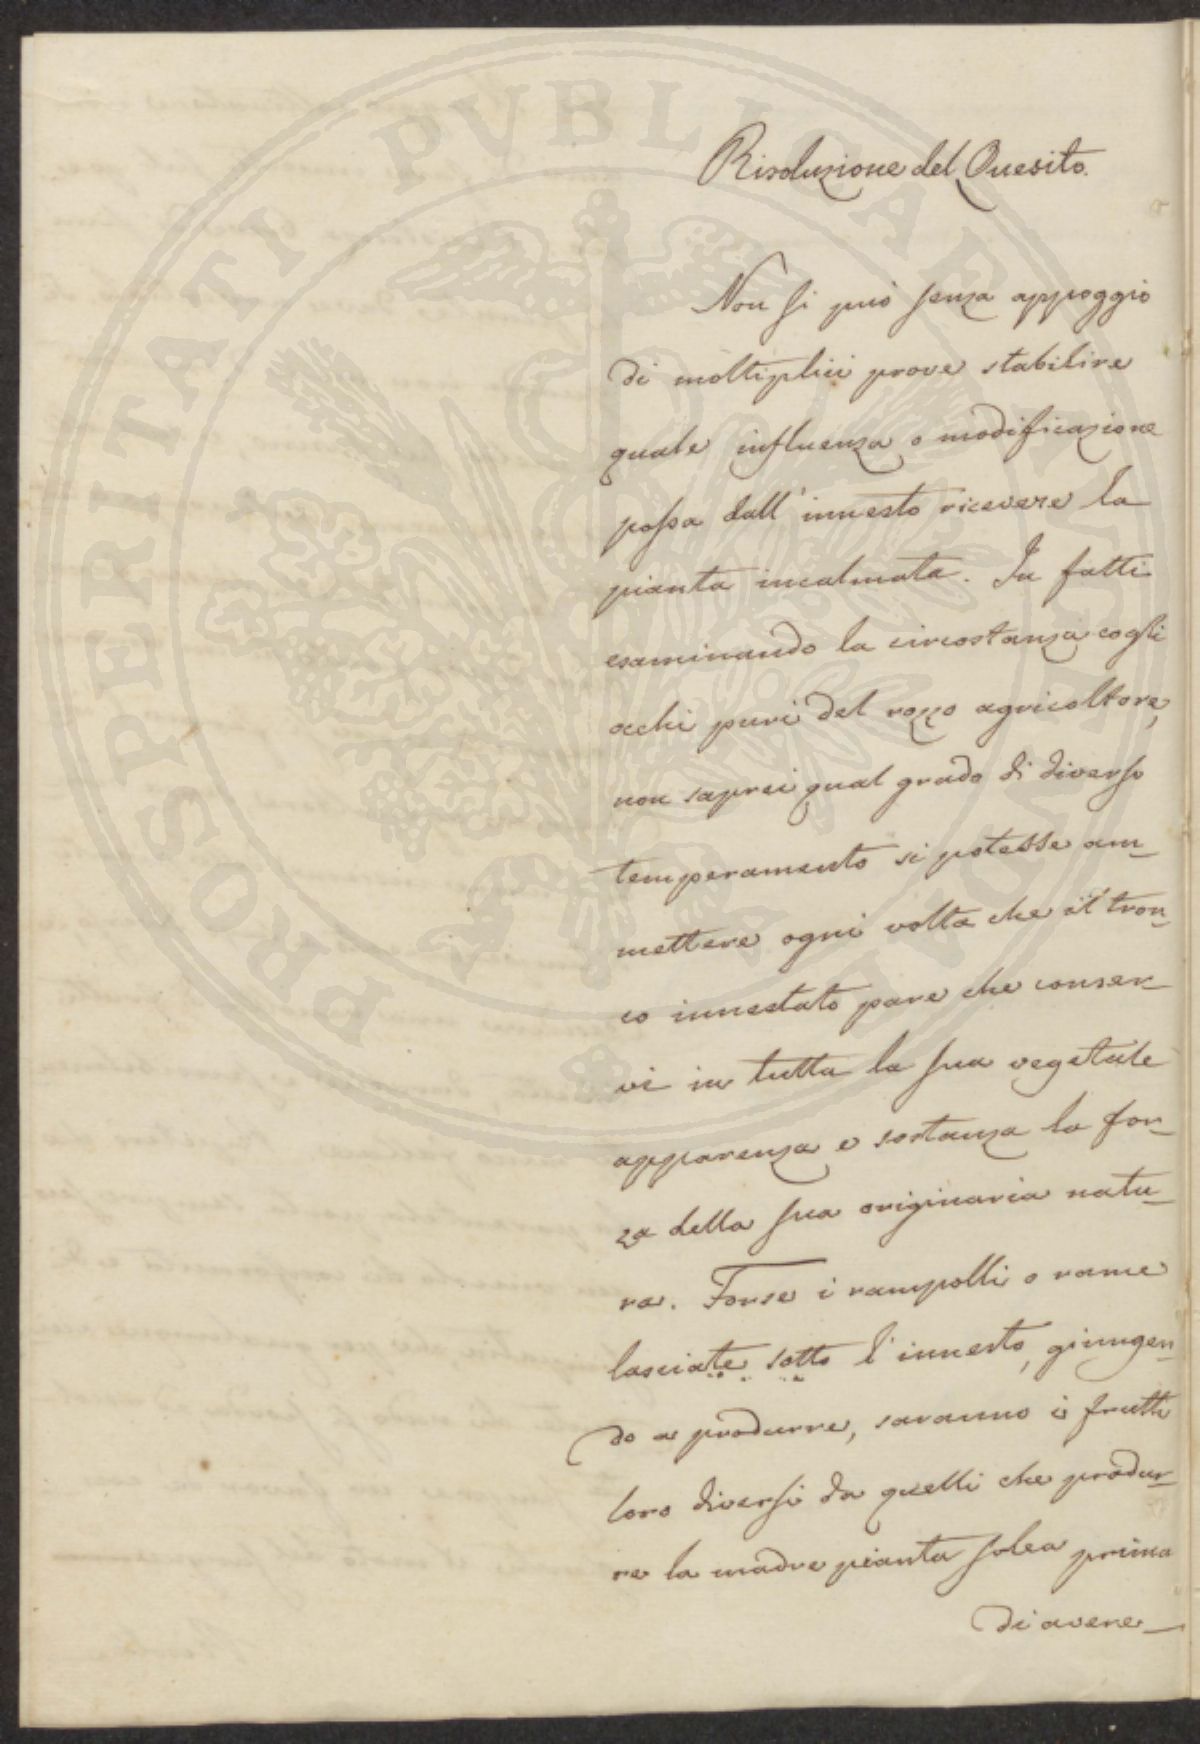 PROSPERITATI PVBLICAE AVGENDAE
Risoluzione del Quesito.
Non si può senza appoggio
di moltiplici prove stabilire
quale influenza o modificazione
possa dall'innesto ricevere la
pianta incalmata. In fatti
esaminando la circostanza cogli
occhi puri del rozzo agricoltore,
non saprei qual grado di diverso
temperamento si potesse am-
mettere ogni volta che il tron-
co innestato pare che conser-
vi in tutta la sua vegetale
apparenza e sostanza la for-
za della sua originaria natu-
ra. Forse i rampolli o rame
lasciate sotto l'innesto, giungen-
do a produrre, saranno i frutti
loro diversi da quelli che produr-
re la madre pianta solea prima
di avere